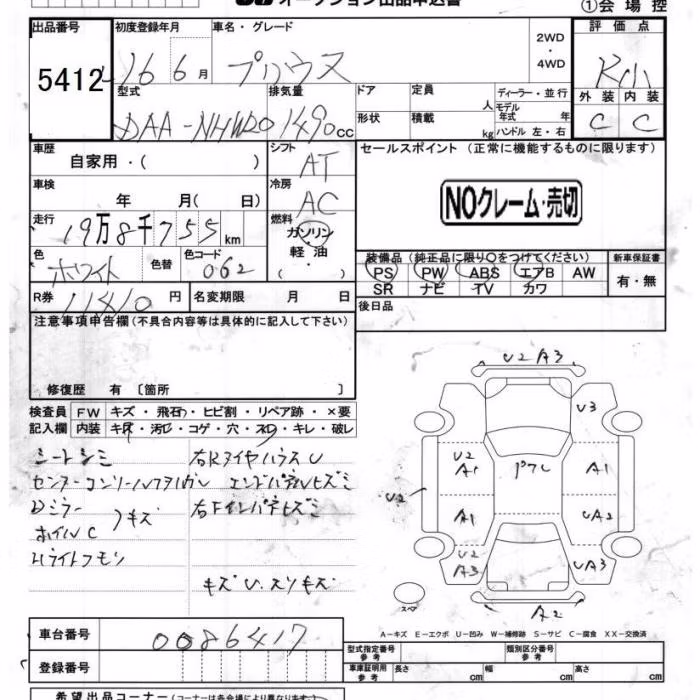 オークション出品申込書
①会場控
出品番号 初度登録年月 車名・グレード 2WD・4WD 評価点
5412 16 6月 プリウス
型式 排気量 ドア 定員 人 ディーラー・並行
形状 積載 kg モデル年式 年 ハンドル 左・右
外装 内装
C C
DAA-NHW20 1490 CC
車歴 自家用・( ) シフト AT セールスポイント (正常に機能するものに限ります)
車検 年 月( 日) 冷房 AC
NOクレーム・売切
走行 19万8千755km 燃料 ガソリン・軽油・( )
色 ホワイト 色替 色コード 062
装備品(純正品に限り○をつけてください) 新車保証書
PS PW ABS エアB AW 有・無
SR ナビ TV カワ
R券 11410円 名変期限 月 日
後日品
注意事項申告欄(不具合内容等は具体的に記入して下さい)
修復歴 有 〔箇所 〕
検査員 FW キズ・飛石・ヒビ割・リペア跡・×要
記入欄 内装 キズ・汚レ・コゲ・穴・スレ・キレ・破レ
シートシミ 右Rタイヤハウス U
エンドパネルヒズミ
Dミラー 右Fインパネヒズミ
ホイルC キズ
Hライトクモリ
キズ U.スリキズ
U2 A3
U3
U2
A1
A1
U2
A1
UA2
U2
A3
UA3
A2
スペア
A-キズ E-エクボ U-凹み W-補修跡 S-サビ C-腐食 XX-交換済
車台番号 0086417
登録番号
型式指定番号 参考 類別区分番号 参考
車庫証明用 参考 長さ cm 幅 cm 高さ cm
希望出品コーナー